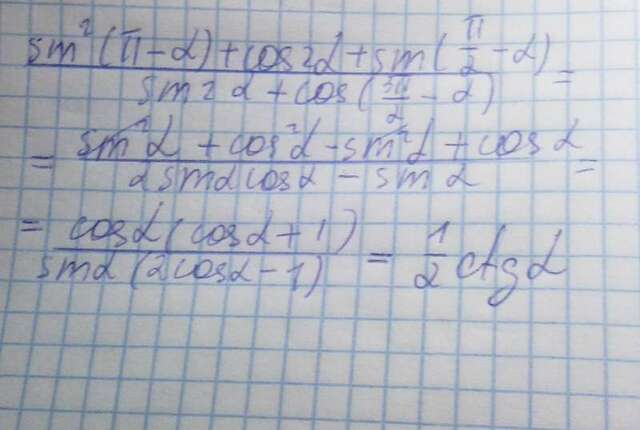 (sin²(π-α)+cos2α+sin(π/2-α))/(sin2α+cos(3π/2-α)) =
= (sin²α+cos²α-sin²α+cosα)/(2sinαcosα-sinα) =
= (cosα(cosα+1))/(sinα(2cosα-1)) = 1/2 ctgα